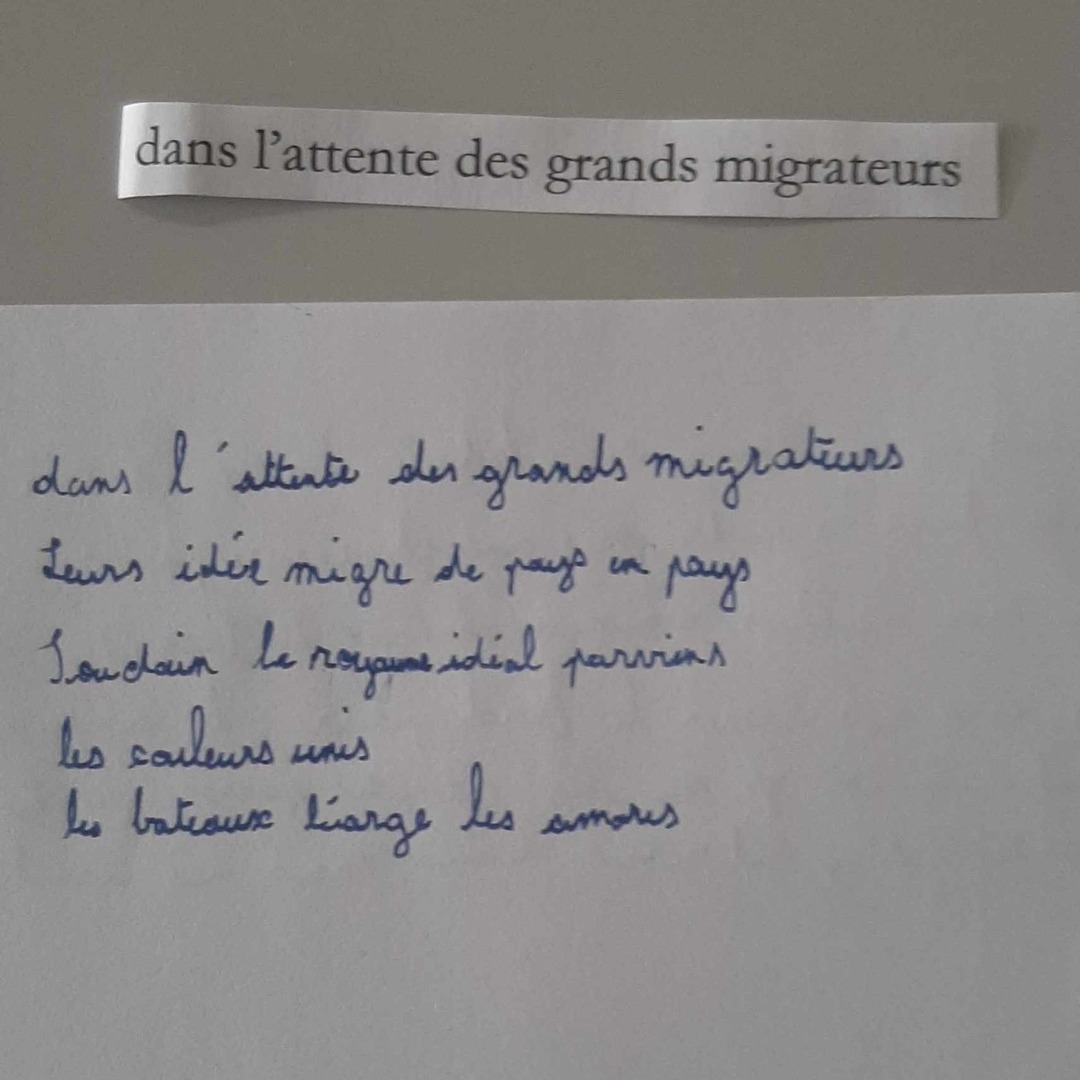 dans l'attente des grands migrateurs
dans l'attente des grands migrateurs
Leurs idée migre de pays en pays
Soudain le royaume idéal parviens
les couleurs unis
les bateaux les amares